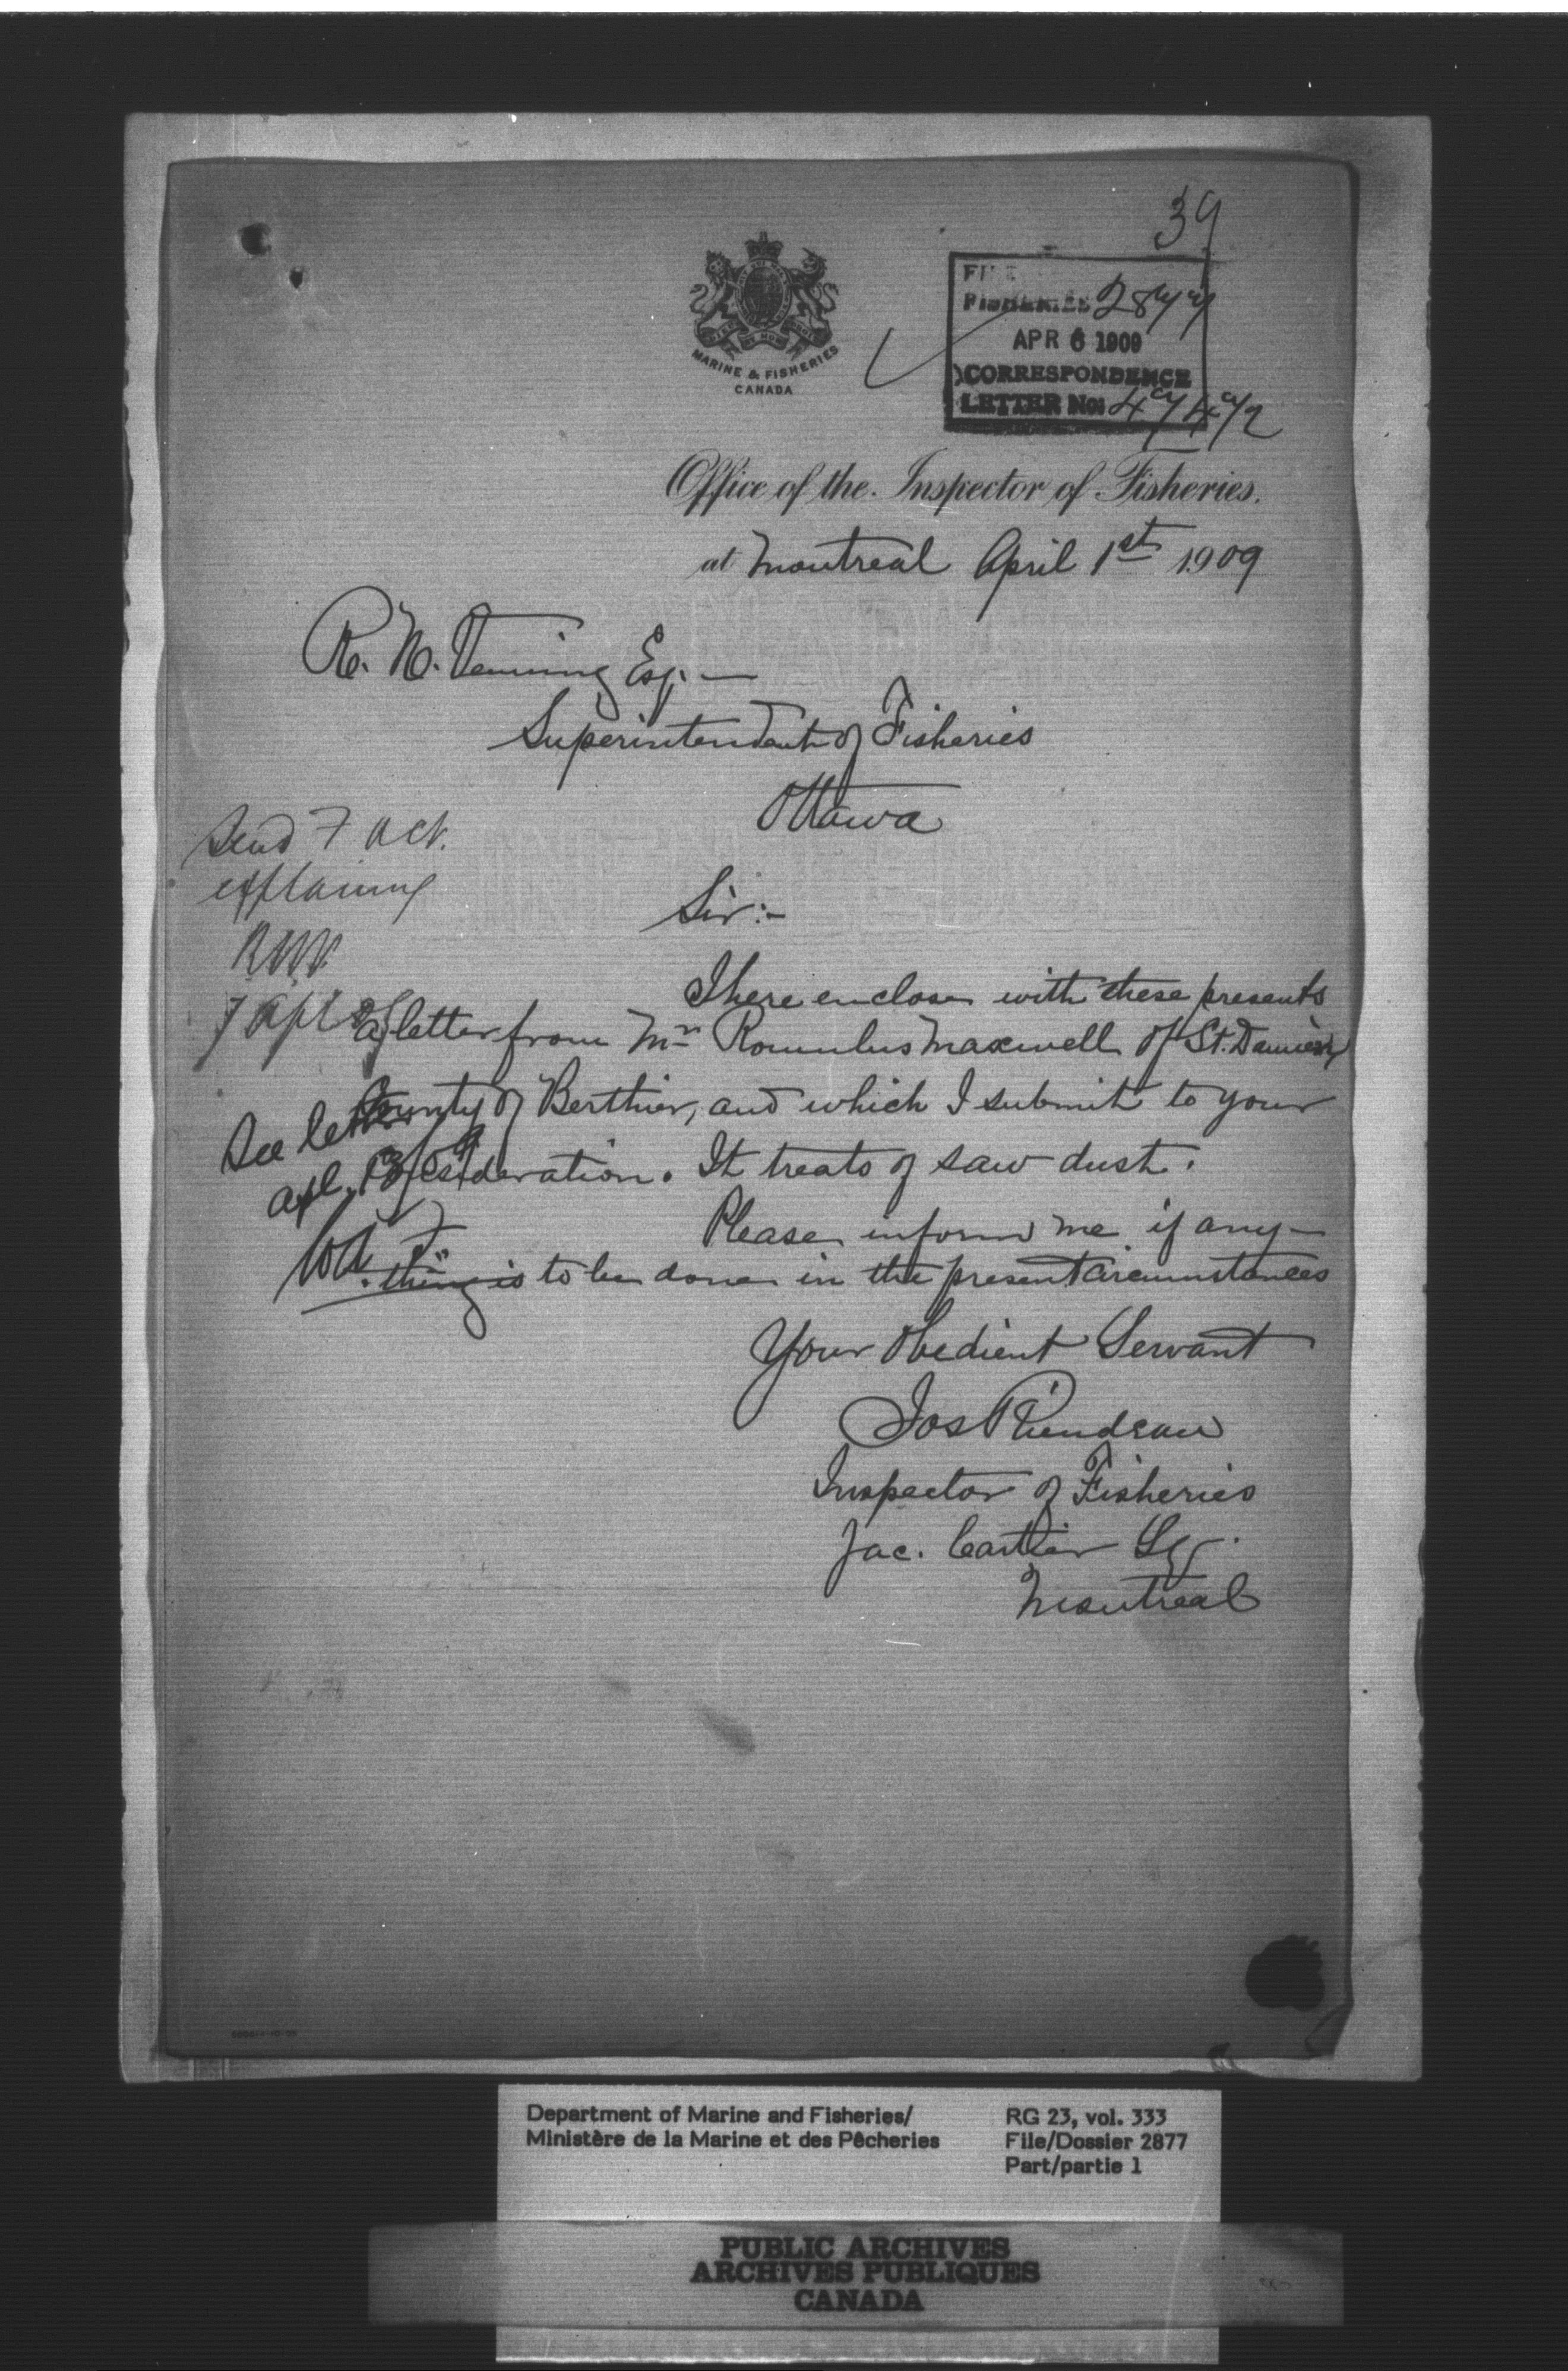 39
MARINE & FISHERIES
CANADA
FILE
FISHERIES 2877
APR 6 1909
CORRESPONDENCE
LETTER No:
Office of the Inspector of Fisheries.
at Montreal April 1st 1909
R. N. Venning Esq. —
Superintendent of Fisheries
Ottawa
Send F ack.
explaining
RNV
7 Apl
Sir:-
I here enclose with these presents
a letter from Mr Romulus Maxwell of St. Damien,
County of Berthier, and which I submit to your
consideration. It treats of saw dust.
See letter
apl. 13/09
Please inform me if any-
thing is to be done in the present circumstances
Your Obedient Servant
Jos Riendeau
Inspector of Fisheries
Jac. Cartier Sq.
Montreal
Department of Marine and Fisheries/
Ministère de la Marine et des Pêcheries
RG 23, vol. 333
File/Dossier 2877
Part/partie 1
PUBLIC ARCHIVES
ARCHIVES PUBLIQUES
CANADA